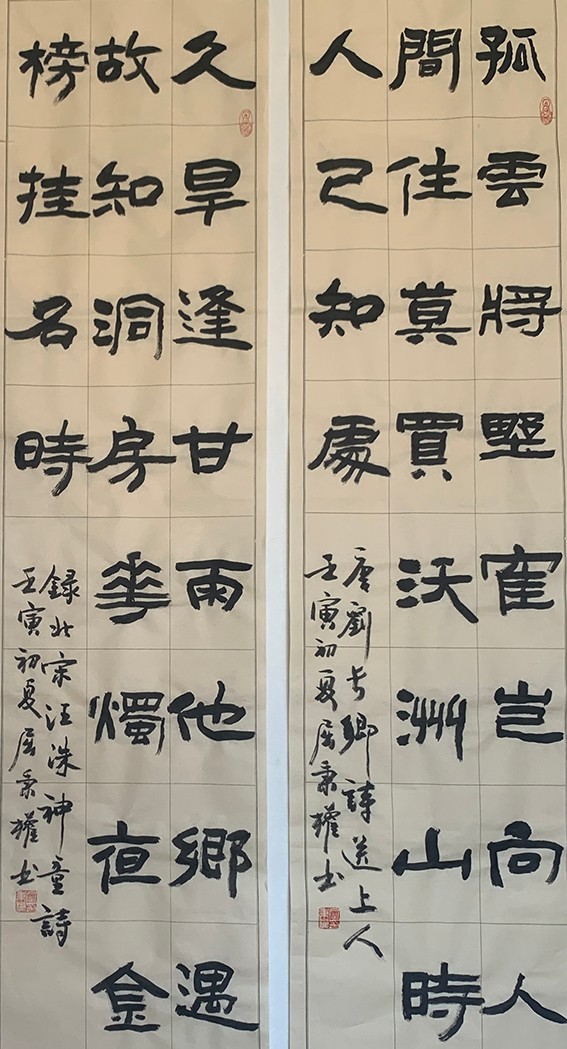 孤雲將墅隺豈向人
間住莫買沃洲山時
人已知處
唐劉長卿詩送上人
壬寅初夏屈秉權书
久旱逢甘雨他鄉遇
故知洞房華燭夜金
榜挂名時
録北宋汪洙神童詩
壬寅初夏屈秉權书